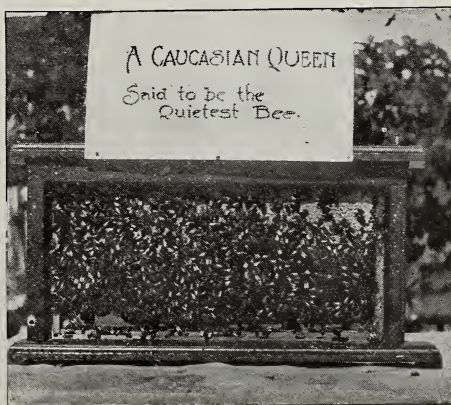 A CAUCASIAN QUEEN
Said to be the
Quietest Bee.